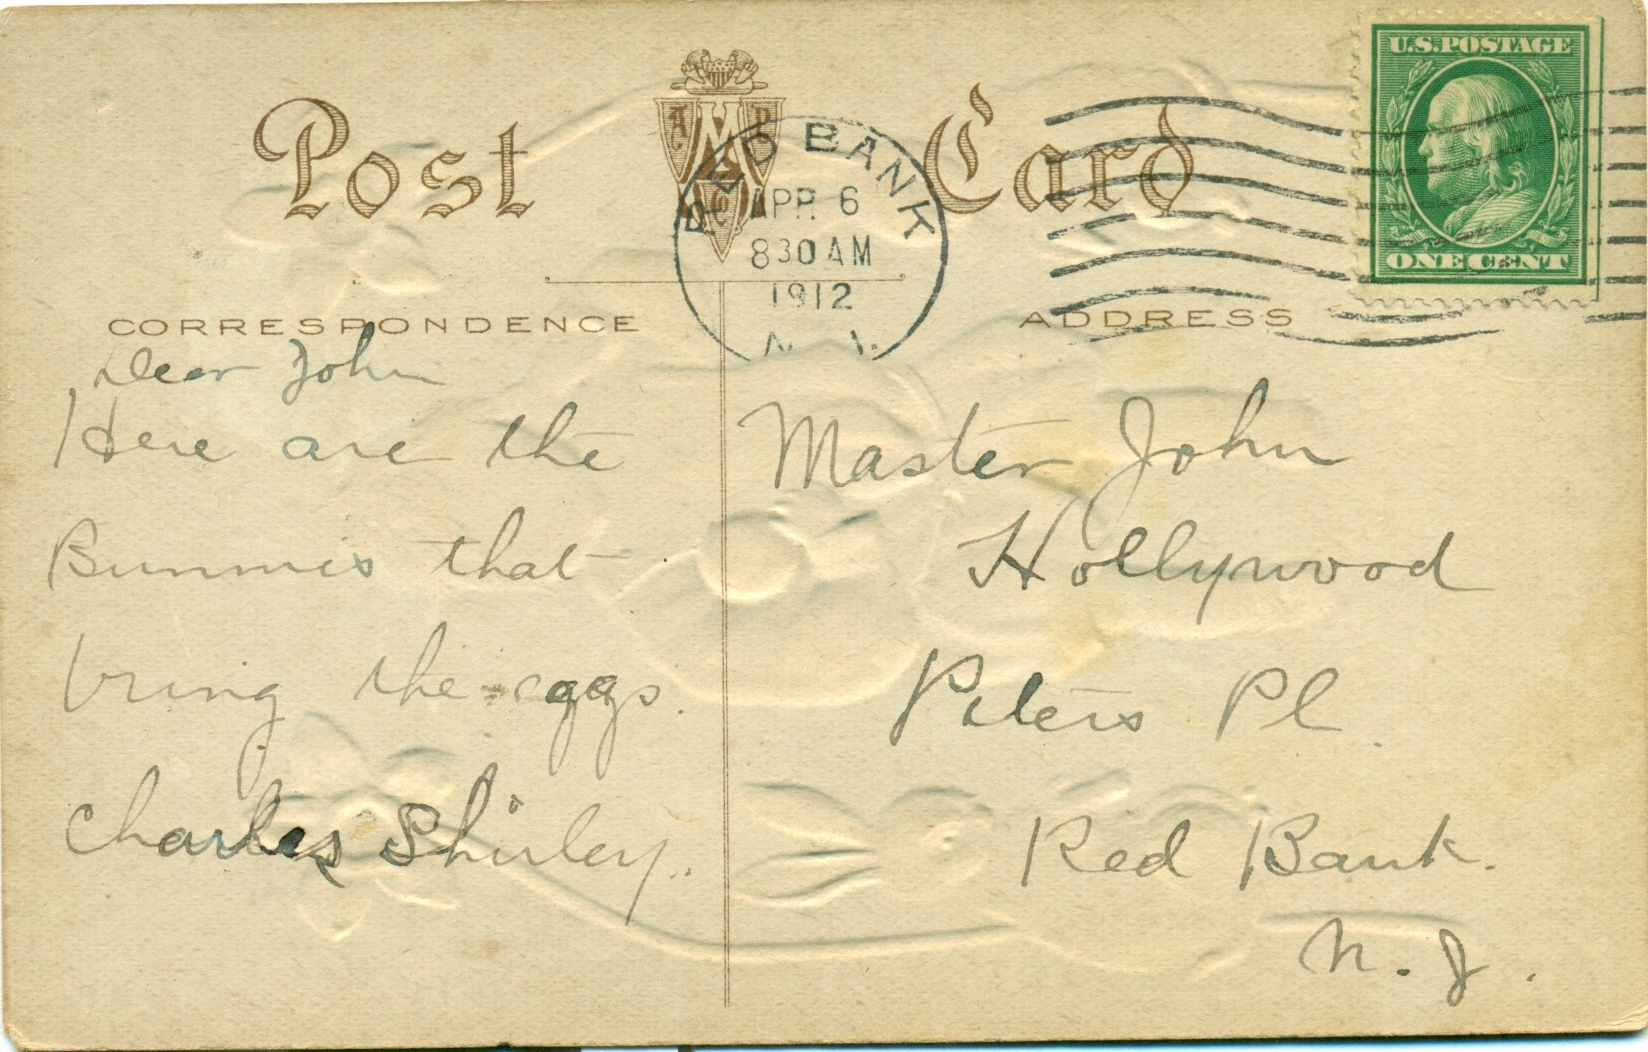 Post Card
U.S. POSTAGE
ONE CENT
RED BANK
APR 6
830 AM
1912
N.J.
CORRESPONDENCE
ADDRESS
Dear John
Here are the
Bunnies that
bring the eggs.
Charles Shirley.
Master John
Hollywood
Peters Pl.
Red Bank.
N. J.